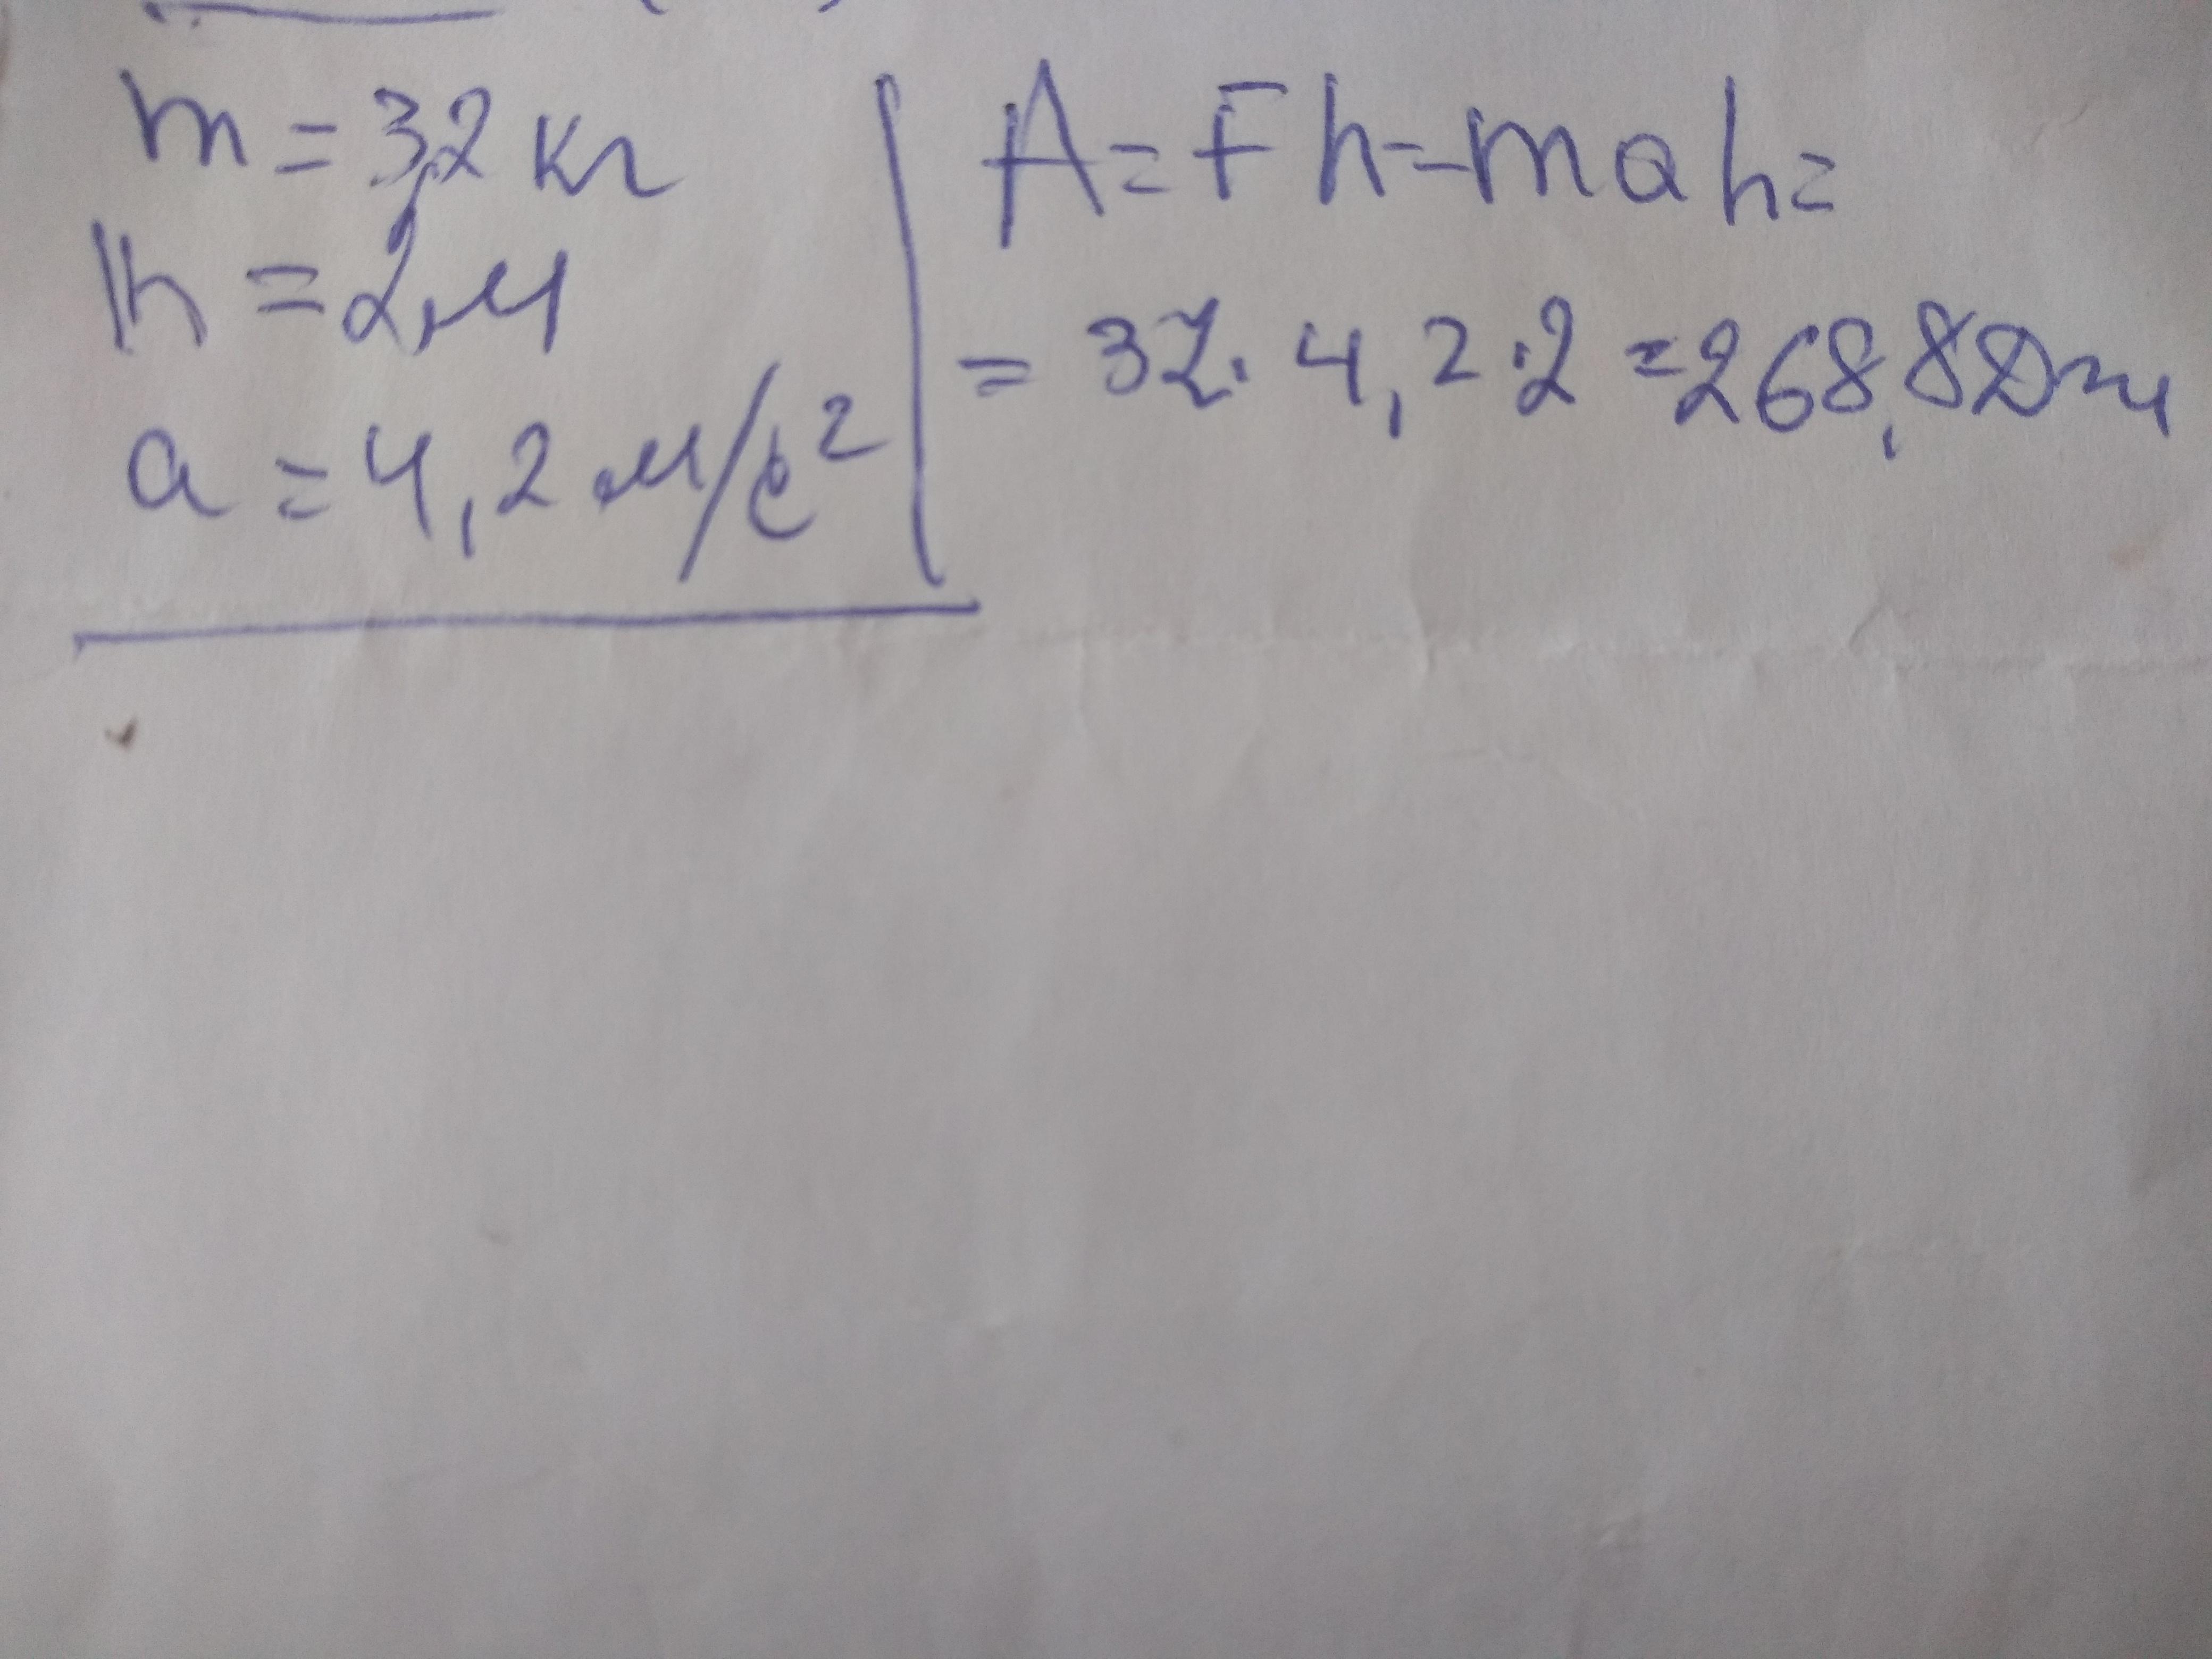 m = 32 кг
h = 2 м
a = 4,2 м/с²
A = Fh = mah =
= 32 · 4,2 · 2 = 268,8 Дж